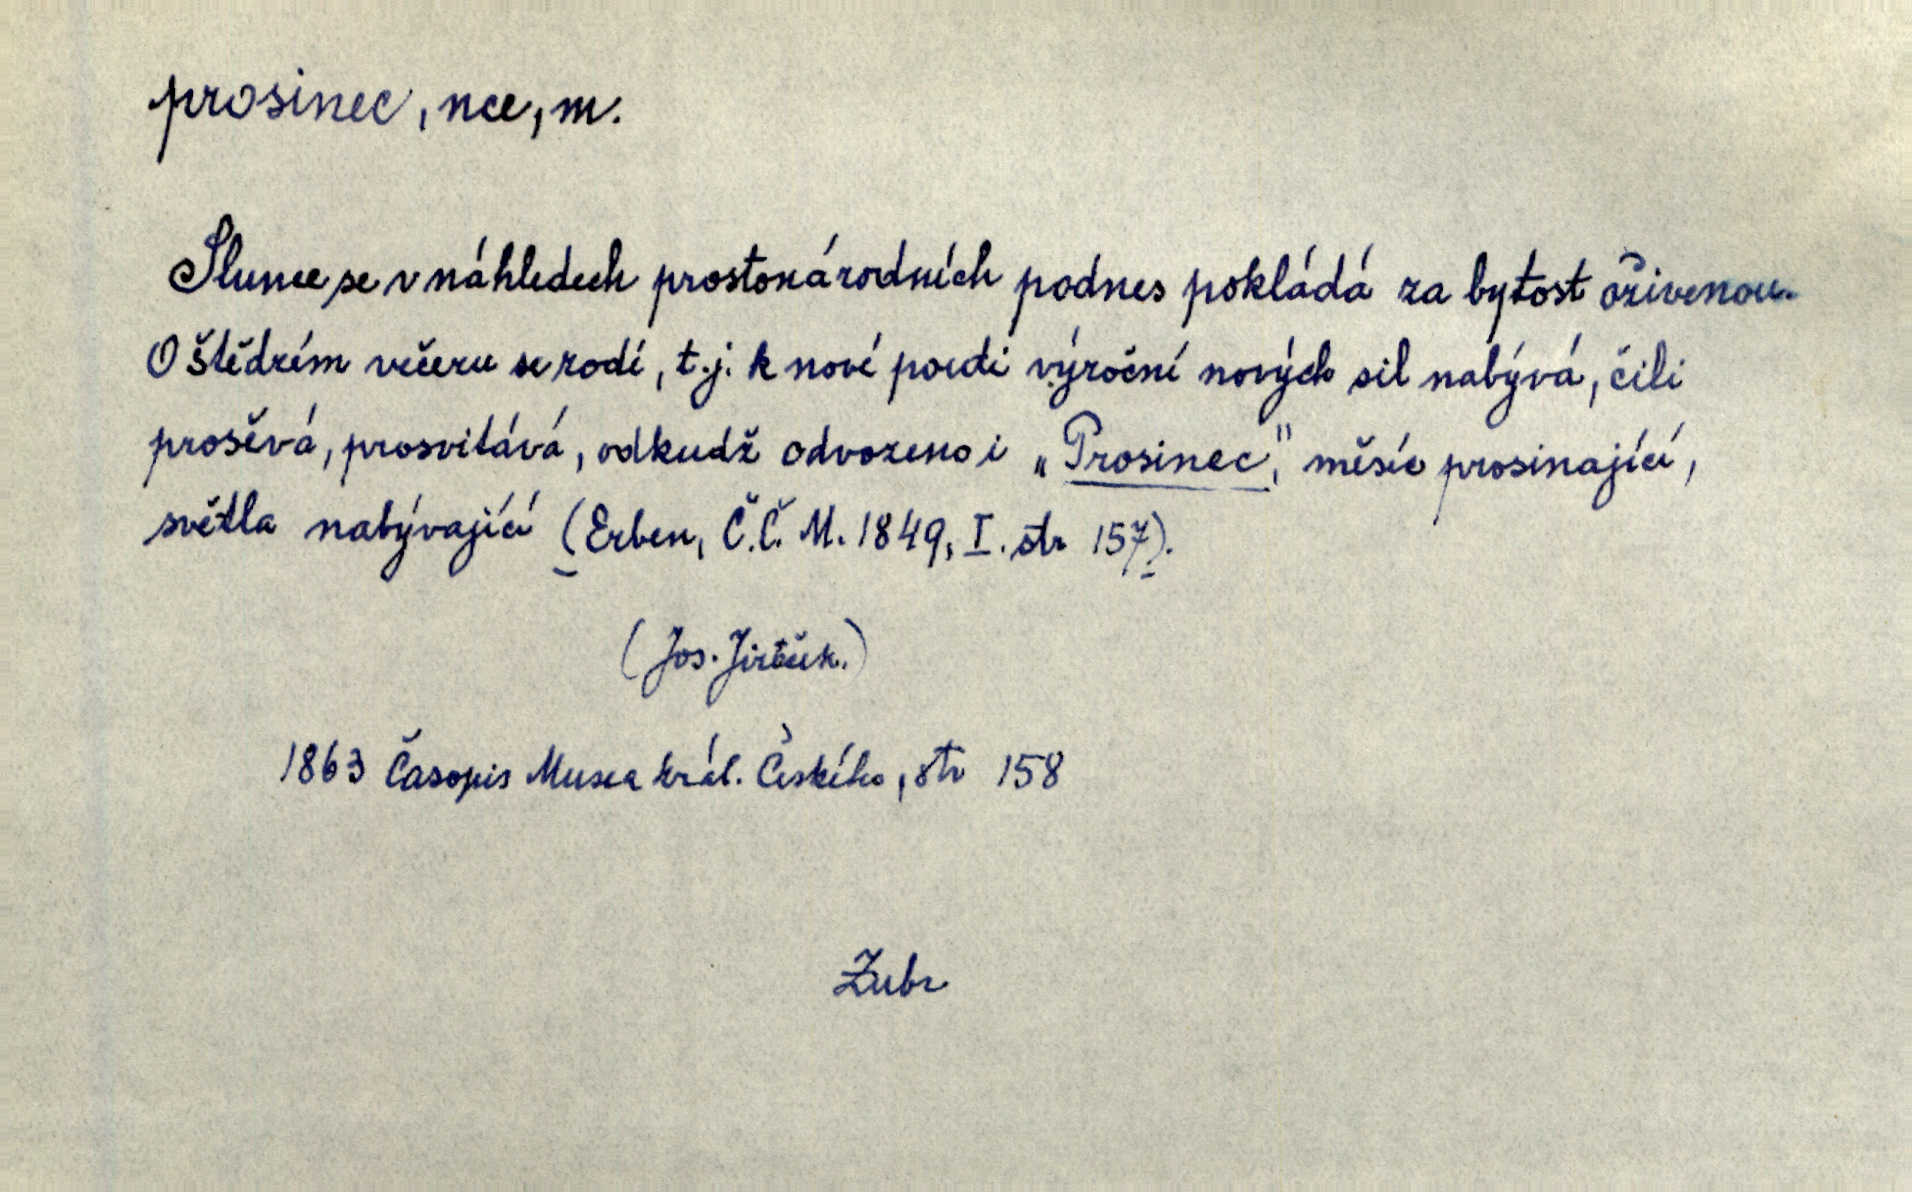 prosinec, nce, m.
Slunce se v náhledech prostonárodních podnes pokládá za bytost oživenou.
O štědrém večeru se rodí, t.j. k nové pouti výroční nových sil nabývá, čili
prosěvá, prosvitává, odkudž odvozeno i „Prosinec," měsíc prosinající,
světla nabývající (Erben, Č.Č. M. 1849, I. str 157).
(Jos. Jireček.)
1863 Časopis Musea král. Českého, str 158
Zubr